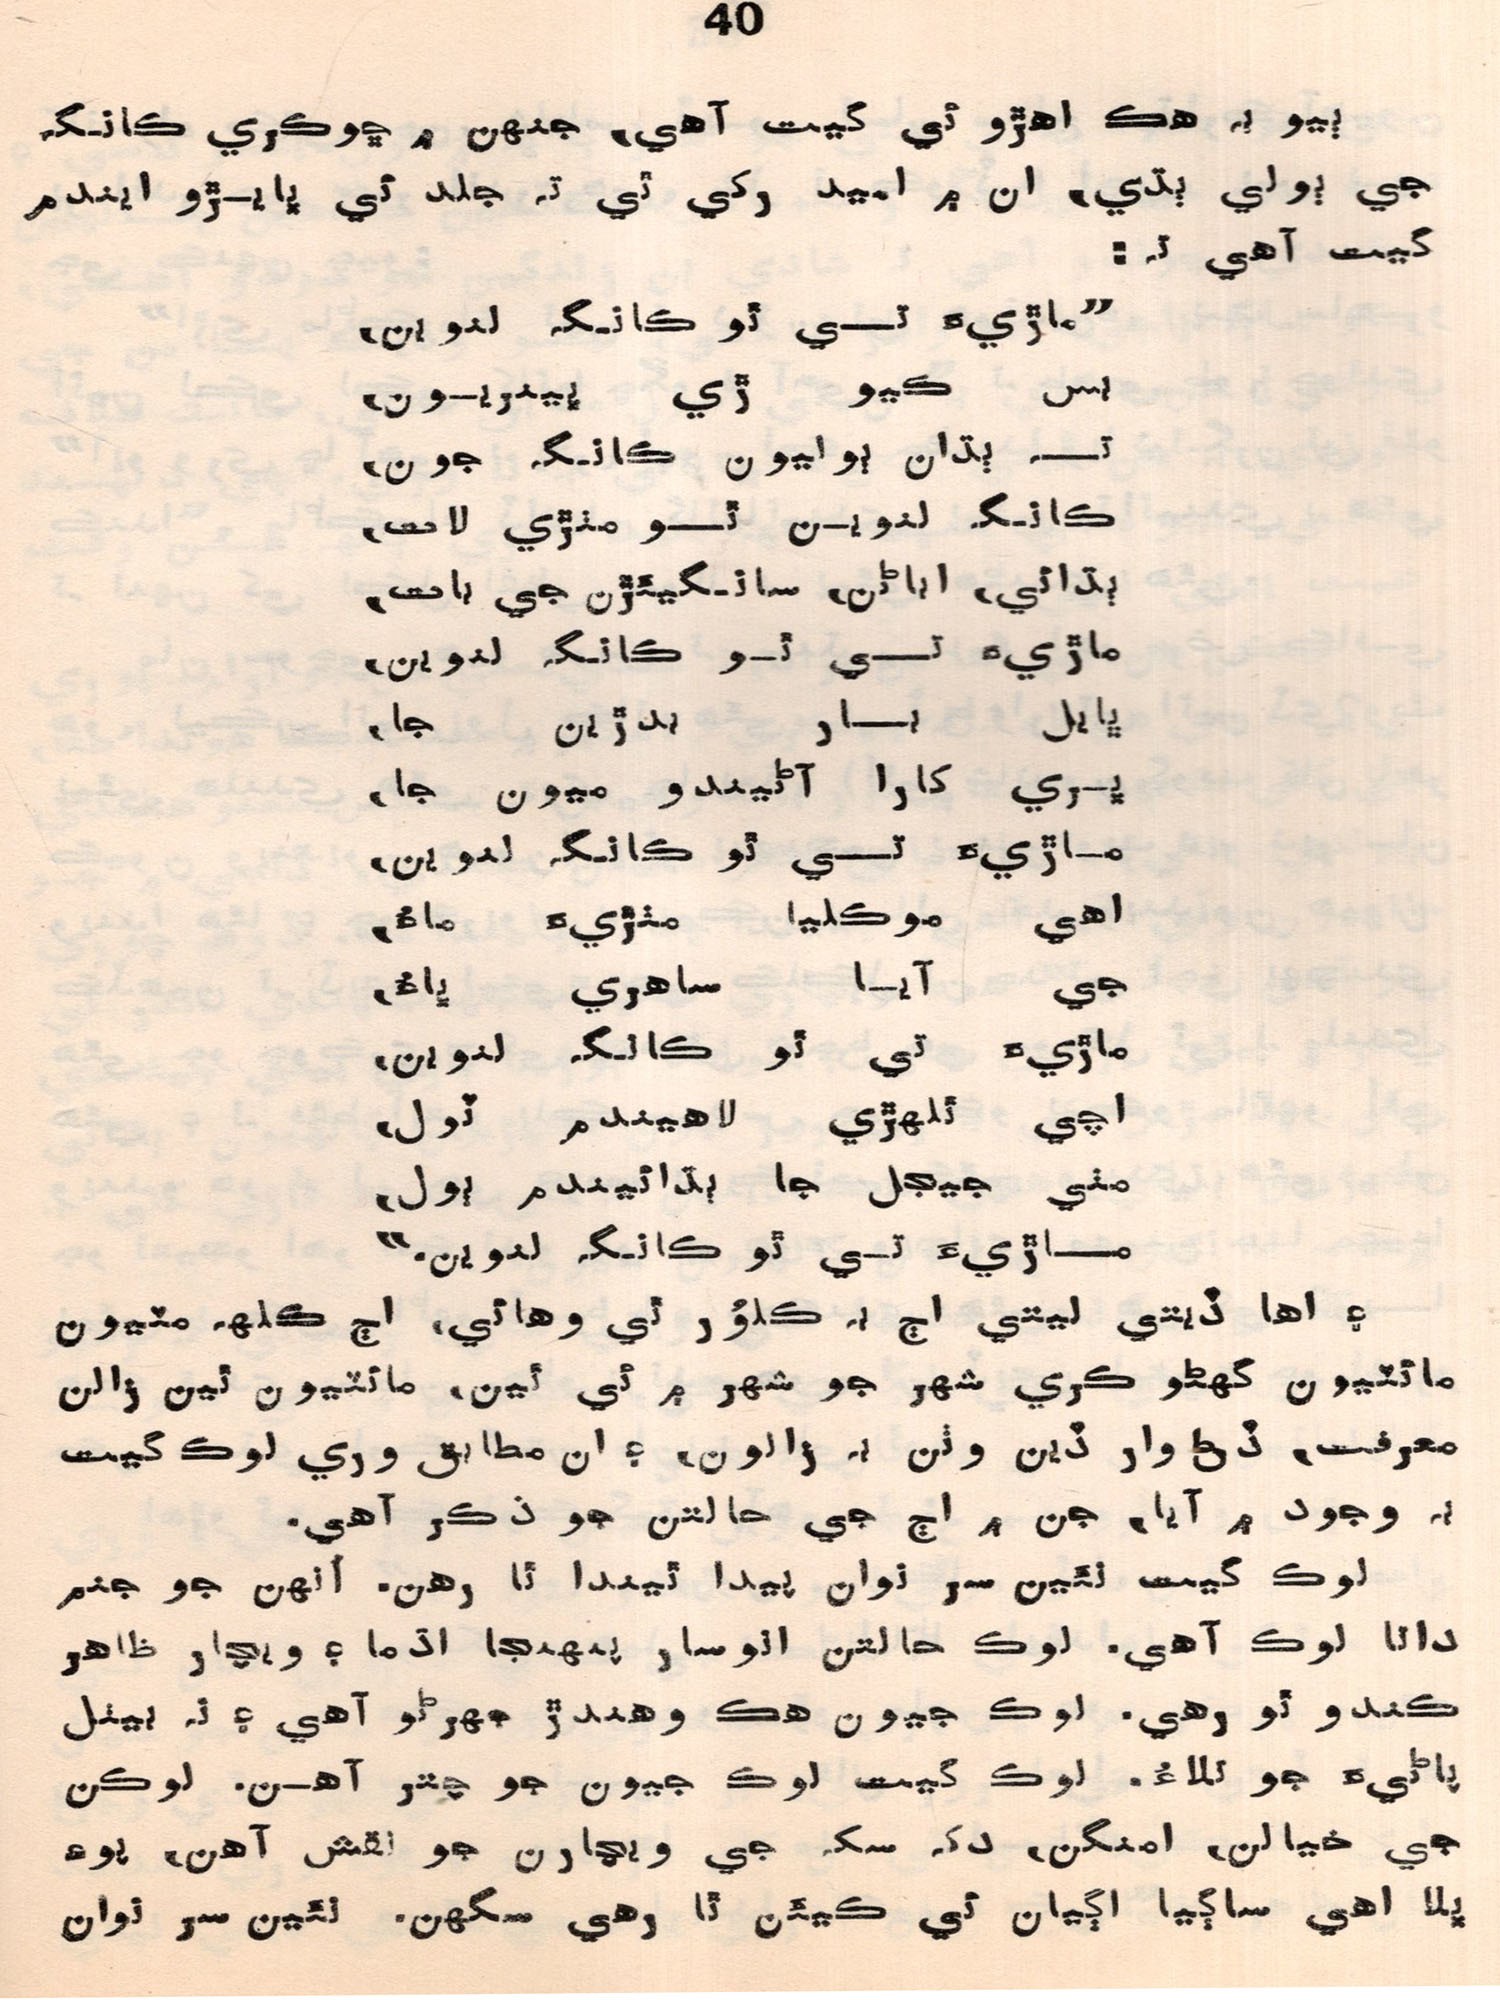 40
ٻيو بہ هڪ اهڙو ئي گيت آهي، جنهن ۾ ڇوڪري ڪانگہ
جي ٻولي ٻڌي، ان ۾ اميد رکي ٿي تہ جلد ئي ڀايڙو ايندم
گيت آهي تہ :
”ماڙيءَ تي ٿو ڪانگہ لنوين،
بس ڪيو ڙي ڀينريون،
تہ ٻڌان ٻوليون ڪانگہ جون،
ڪانگہ لنوين ٿو مٺڙي لات،
ٻڌائي، اباڻن، سانگيئڙن جي بات،
ماڙيءَ تي ٿو ڪانگہ لنوين،
ڀايل بار ٻڌڙين جا،
ڀري کارا آڻيندو ميون جا،
ماڙيءَ تي ٿو ڪانگہ لنوين،
اهي موڪليا مٺڙيءَ ماءُ،
جي آيا ساهري ڀاءُ،
ماڙيءَ تي ٿو ڪانگہ لنوين،
اچي ٿلهڙي لاهيندم ٽول،
مٺي جيجل جا ٻڌائيندم ٻول،
ماڙيءَ تي ٿو ڪانگہ لنوين.“
۽ اها ڏيتي ليتي اڄ بہ ڪلوُر ئي وهائي، اڄ ڪلهہ مٽيون
مائٽيون گهڻو ڪري شهر جو شهر ۾ ئي ٿين، مائٽيون ٿين زالن
معرفت، ڏڃ وار ڏين وٺن بہ زالون، ۽ ان مطابق وري لوڪ گيت
بہ وجود ۾ آيا، جن ۾ اڄ جي حالتن جو ذڪر آهي.
لوڪ گيت نئين سر نوان پيدا ٿيندا ٿا رهن. اُنهن جو جنم
داتا لوڪ آهي. لوڪ حالتن انوسار پنهنجا اڌما ۽ ويچار ظاهر
ڪندو ٿو رهي. لوڪ جيون هڪ وهندڙ جهرڻو آهي ۽ نہ بيٺل
پاڻيءَ جو تلاءُ. لوڪ گيت لوڪ جيون جو چتر آهن. لوڪن
جي خيالن، امنگن، دک سک جي ويچارن جو نقش آهن، پوءِ
ڀلا اهي ساڳيا اڳيان ئي ڪيئن ٿا رهي سگهن. نئين سر نوان